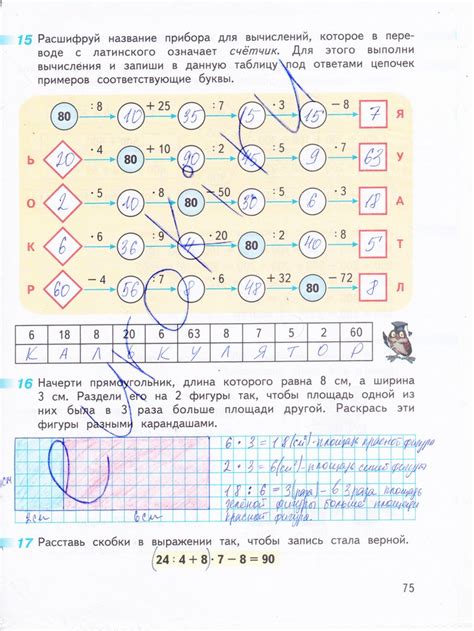 15 Расшифруй название прибора для вычислений, которое в пере-
воде с латинского означает счётчик. Для этого выполни
вычисления и запиши в данную таблицу под ответами цепочек
примеров соответствующие буквы.
80 : 8 10 + 25 35 : 7 5 · 3 15 − 8 7 Я
Ь 20 · 4 80 + 10 90 : 2 45 : 5 9 · 7 63 У
О 2 · 5 10 · 8 80 − 50 30 : 5 6 · 3 18 А
К 6 · 6 36 : 9 4 · 20 80 : 2 40 : 8 5 Т
Р 60 − 4 56 : 7 8 · 6 48 + 32 80 − 72 8 Л
6 18 8 20 6 63 8 7 5 2 60
К А Л Ь К У Л Я Т О Р
16 Начерти прямоугольник, длина которого равна 8 см, а ширина
3 см. Раздели его на 2 фигуры так, чтобы площадь одной из
них была в 3 раза больше площади другой. Раскрась эти
фигуры разными карандашами.
6 · 3 = 18 (см²) - площадь красной фигуры
2 · 3 = 6 (см²) - площадь синей фигуры
18 : 6 = 3 (раза) - в 3 раза площадь
зелёной фигуры больше площади
красной фигуры.
2см 6см
17 Расставь скобки в выражении так, чтобы запись стала верной.
(24 : 4 + 8) · 7 − 8 = 90
75